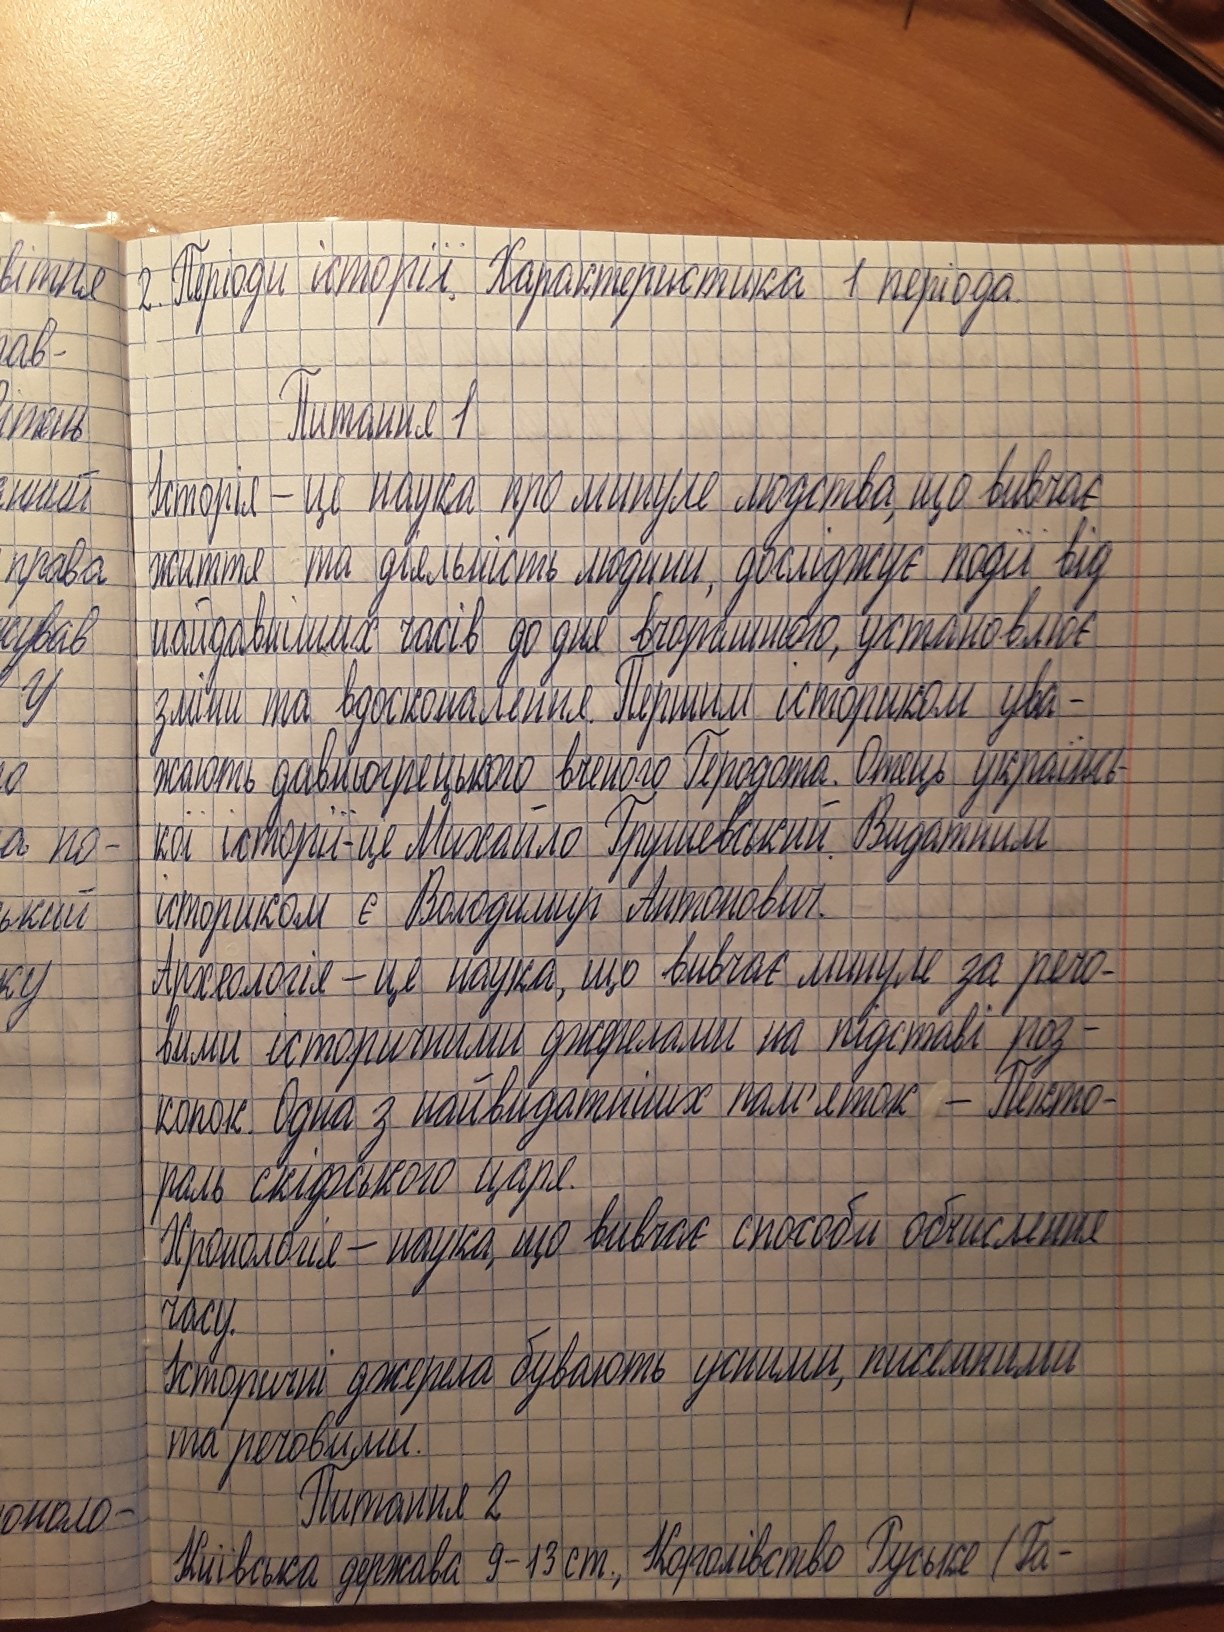 2. Періоди історії. Характеристика 1 періода.
Питання 1
Історія – це наука про минуле людства, що вивчає
життя та діяльність людини, досліджує події від
найдавніших часів до дня вчорашнього, установлює
зміни та вдосконалення. Першим істориком ува-
жають давньогрецького вченого Геродота. Отець українсь-
кої історії – це Михайло Грушевський. Видатним
істориком є Володимир Антонович.
Археологія – це наука, що вивчає минуле за речо-
вими історичними джерелами на підставі роз-
копок. Одна з найвидатніших пам'яток – Пекто-
раль скіфського царя.
Хронологія – наука, що вивчає способи обчислення
часу.
Історичні джерела бувають усними, писемними
та речовими.
Питання 2
Київська держава 9-13 ст., Королівство Руське (Га-
права
У
по-
ку